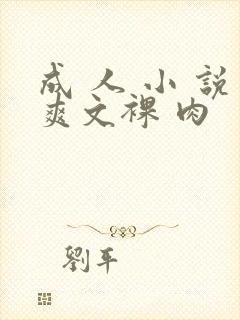 成人小說
爽文裸肉
劉平